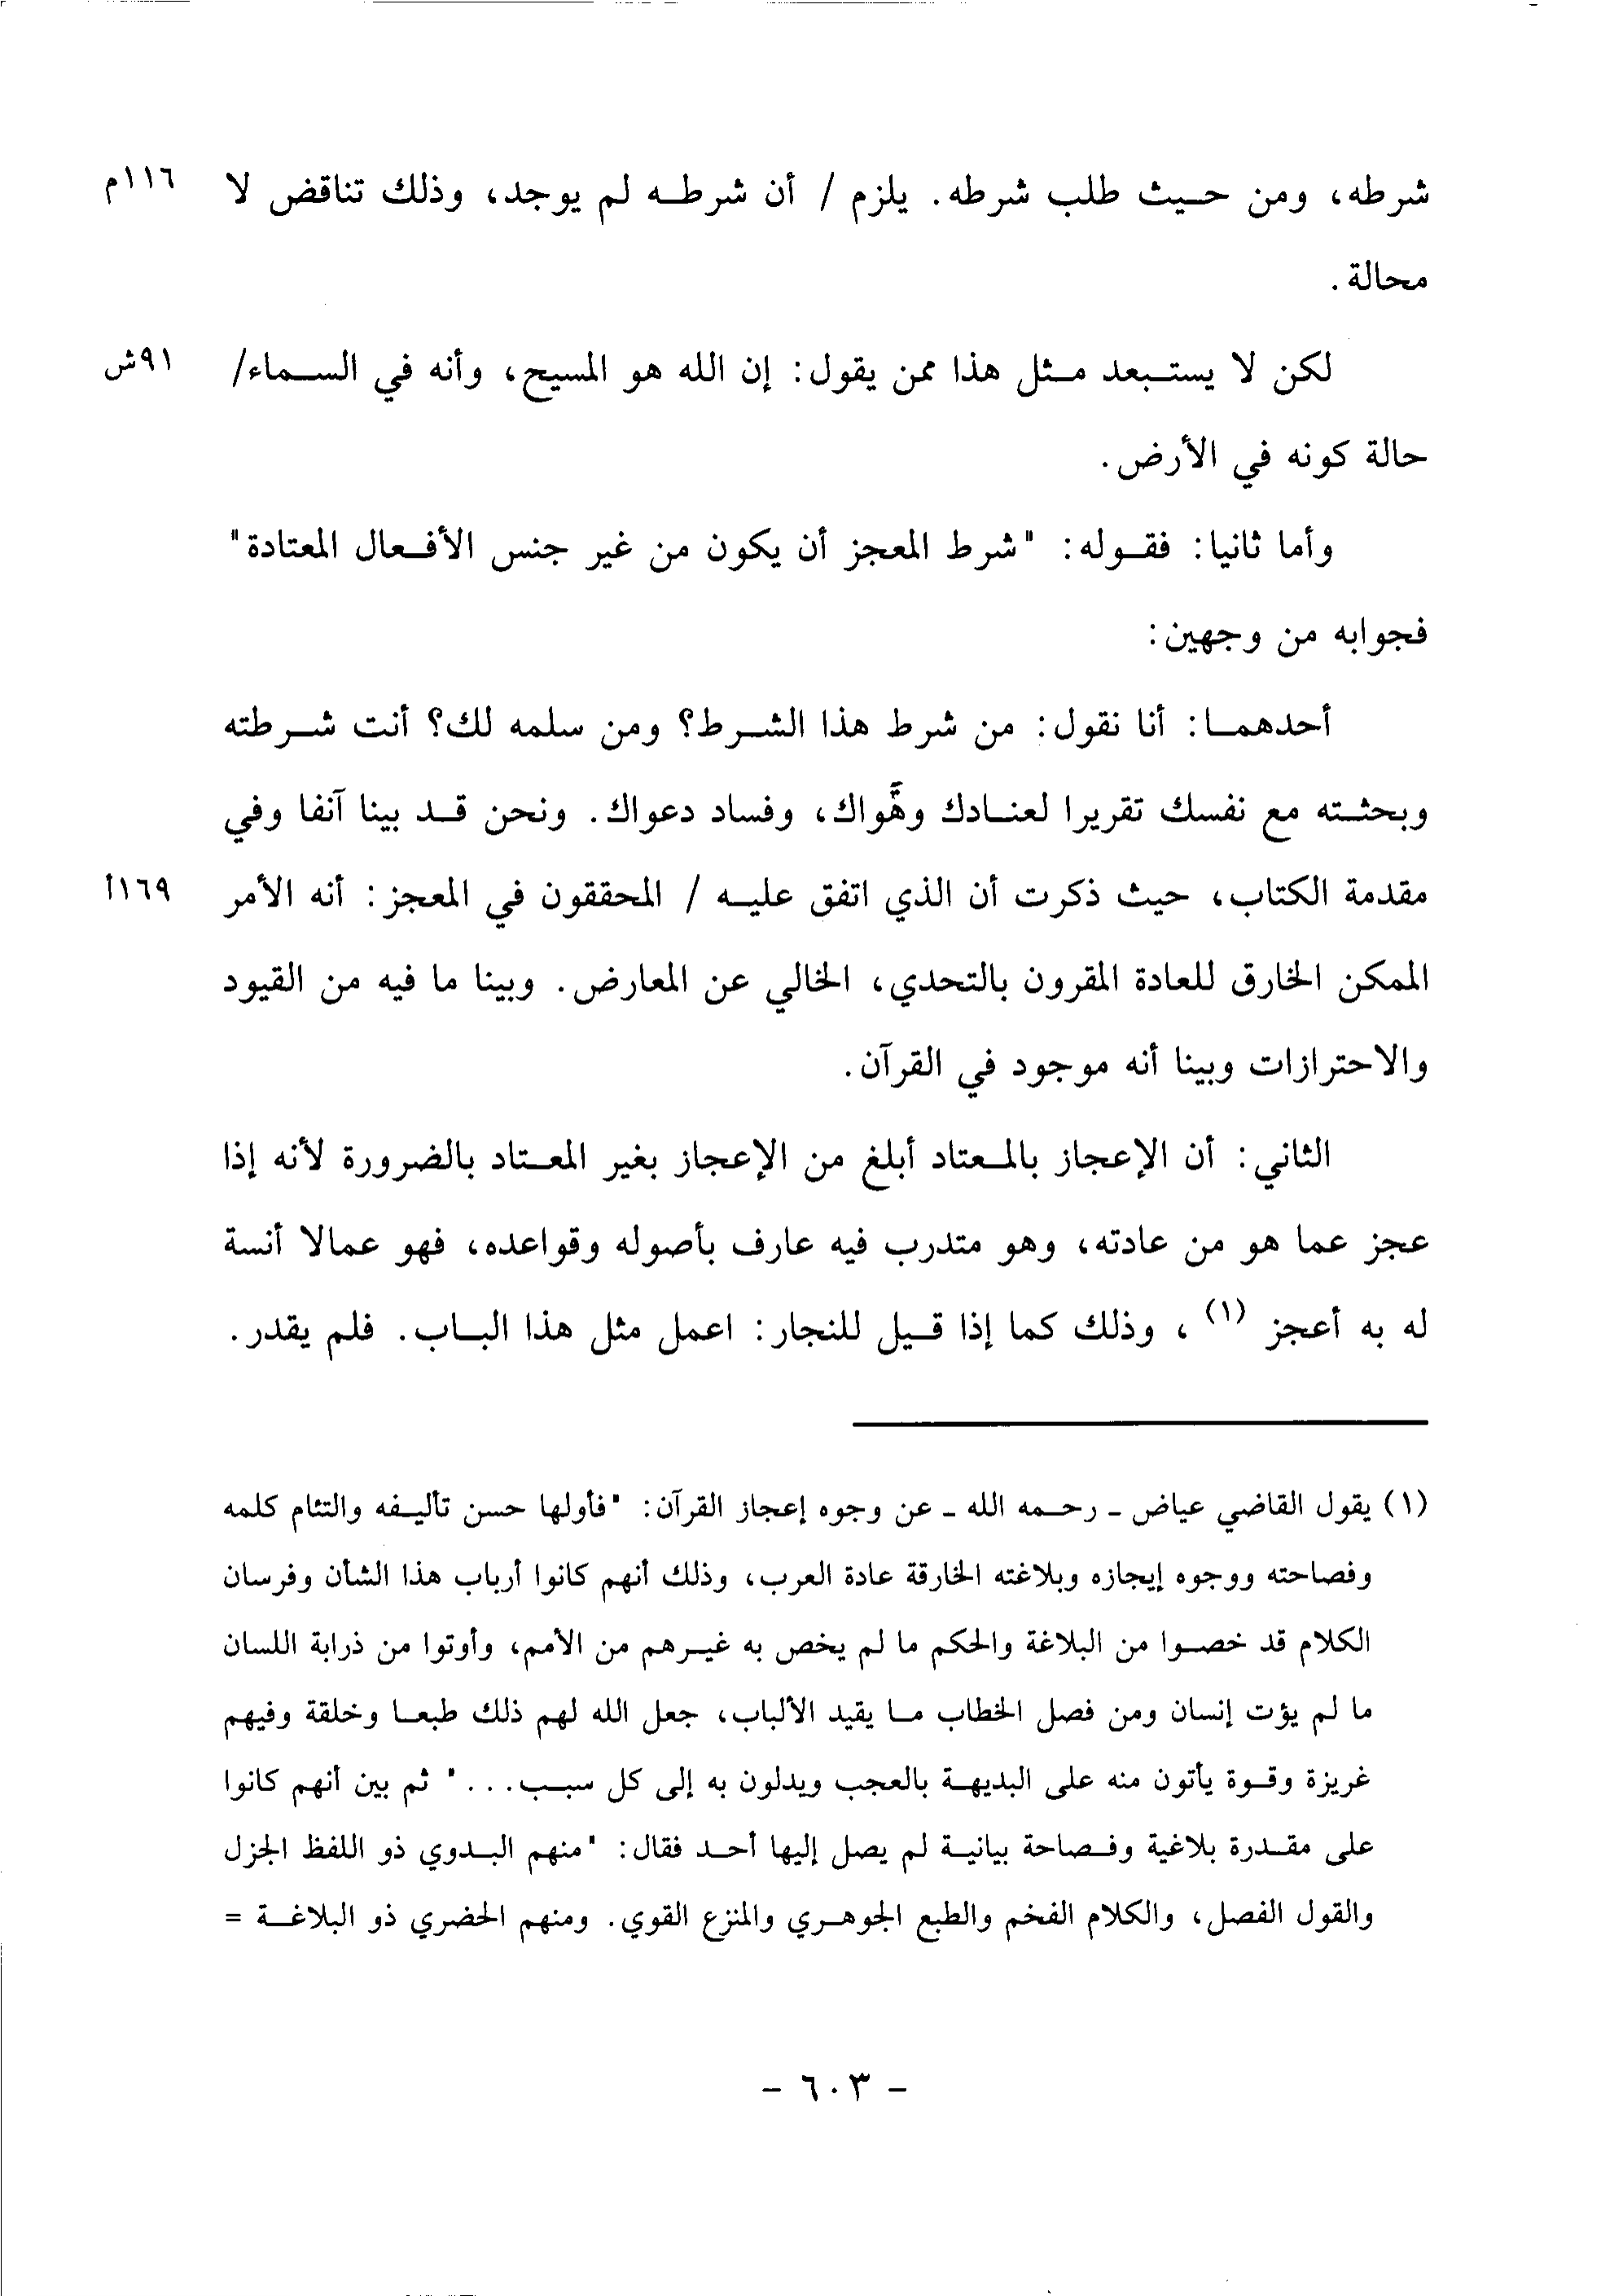 شرطه، ومن حيث طلب شرطه. يلزم / أن شرطه لم يوجد، وذلك تناقض لا ١١٦م
محالة.
لكن لا يستبعد مثل هذا ممن يقول: إن الله هو المسيح، وأنه في السماء/ ٩١ش
حالة كونه في الأرض.
وأما ثانيا: فقوله: "شرط المعجز أن يكون من غير جنس الأفعال المعتادة"
فجوابه من وجهين:
أحدهما: أنا نقول: من شرط هذا الشرط؟ ومن سلمه لك؟ أنت شرطته
وبحثته مع نفسك تقريرا لعنادك وهَواك، وفساد دعواك. ونحن قد بينا آنفا وفي
مقدمة الكتاب، حيث ذكرت أن الذي اتفق عليه / المحققون في المعجز: أنه الأمر ١٦٩أ
الممكن الخارق للعادة المقرون بالتحدي، الخالي عن المعارض. وبينا ما فيه من القيود
والاحترازات وبينا أنه موجود في القرآن.
الثاني: أن الإعجاز بالمعتاد أبلغ من الإعجاز بغير المعتاد بالضرورة لأنه إذا
عجز عما هو من عادته، وهو متدرب فيه عارف بأصوله وقواعده، فهو عمالا أنسة
له به أعجز (١)، وذلك كما إذا قيل للنجار: اعمل مثل هذا الباب. فلم يقدر.
(١) يقول القاضي عياض - رحمه الله - عن وجوه إعجاز القرآن: "فأولها حسن تأليفه والتئام كلمه
وفصاحته ووجوه إيجازه وبلاغته الخارقة عادة العرب، وذلك أنهم كانوا أرباب هذا الشأن وفرسان
الكلام قد خصوا من البلاغة والحكم ما لم يخص به غيرهم من الأمم، وأوتوا من ذرابة اللسان
ما لم يؤت إنسان ومن فصل الخطاب ما يقيد الألباب، جعل الله لهم ذلك طبعا وخلقة وفيهم
غريزة وقوة يأتون منه على البديهة بالعجب ويدلون به إلى كل سبب..." ثم بين أنهم كانوا
على مقدرة بلاغية وفصاحة بيانية لم يصل إليها أحد فقال: "منهم البدوي ذو اللفظ الجزل
والقول الفصل، والكلام الفخم والطبع الجوهري والمنزع القوي. ومنهم الحضري ذو البلاغة =
- ٦٠٣ -